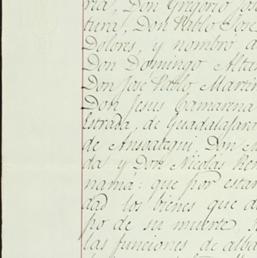 ria, Don Gregorio José
tura, Don Pablo José
Dolores, y nombro a
Don Domingo Alta
Don José Pablo, Martín
Don Jesus Camarena
Estrada, de Guadalajara
de Ansoategui, Don
da y Don Nicolas Re
namá: que por estar
dad los bienes que
po de su muerte,
las funciones de alba